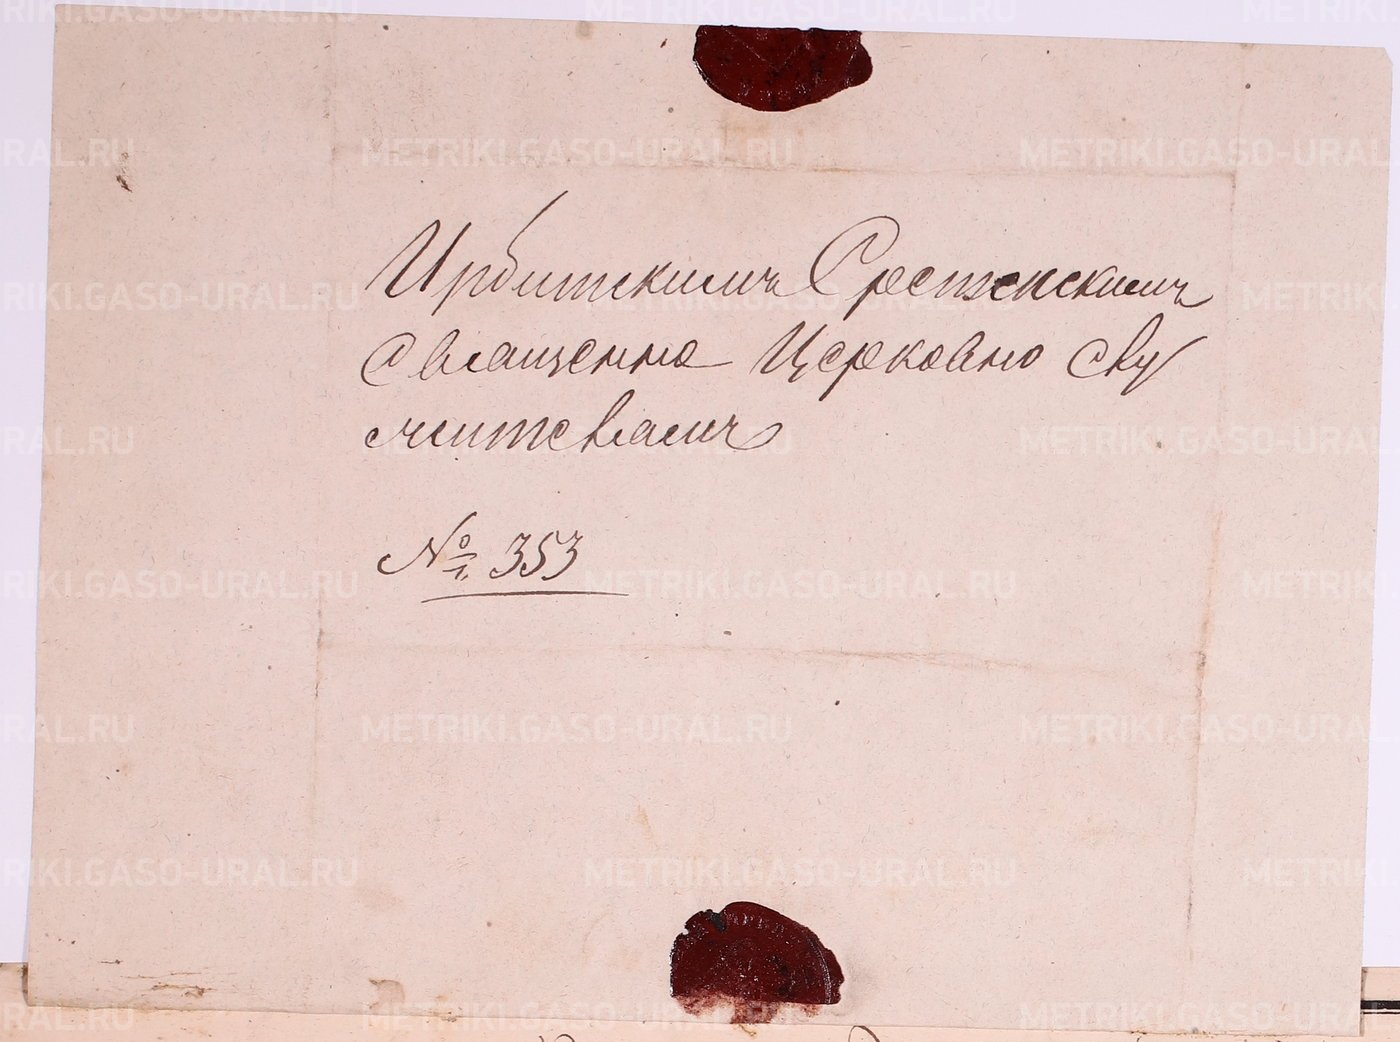 Ирбитскимъ Сретенскимъ
священно Церковно слу
жителямъ
№ 353
METRIKI.GASO-URAL.RU